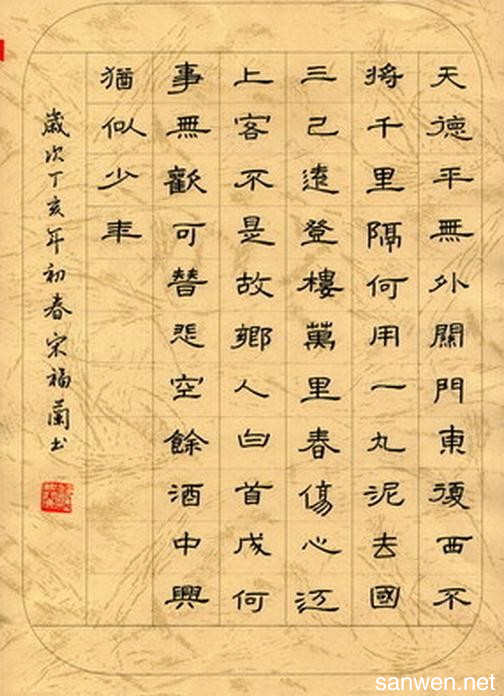 天德平無外關門東復西不
將千里隔何用一丸泥去國
三己遠登樓萬里春傷心江
上客不是故鄉人白首成何
事無歡可替悲空餘酒中興
猶似少年
歲次丁亥年初春宋福蘭书
sanwen.net